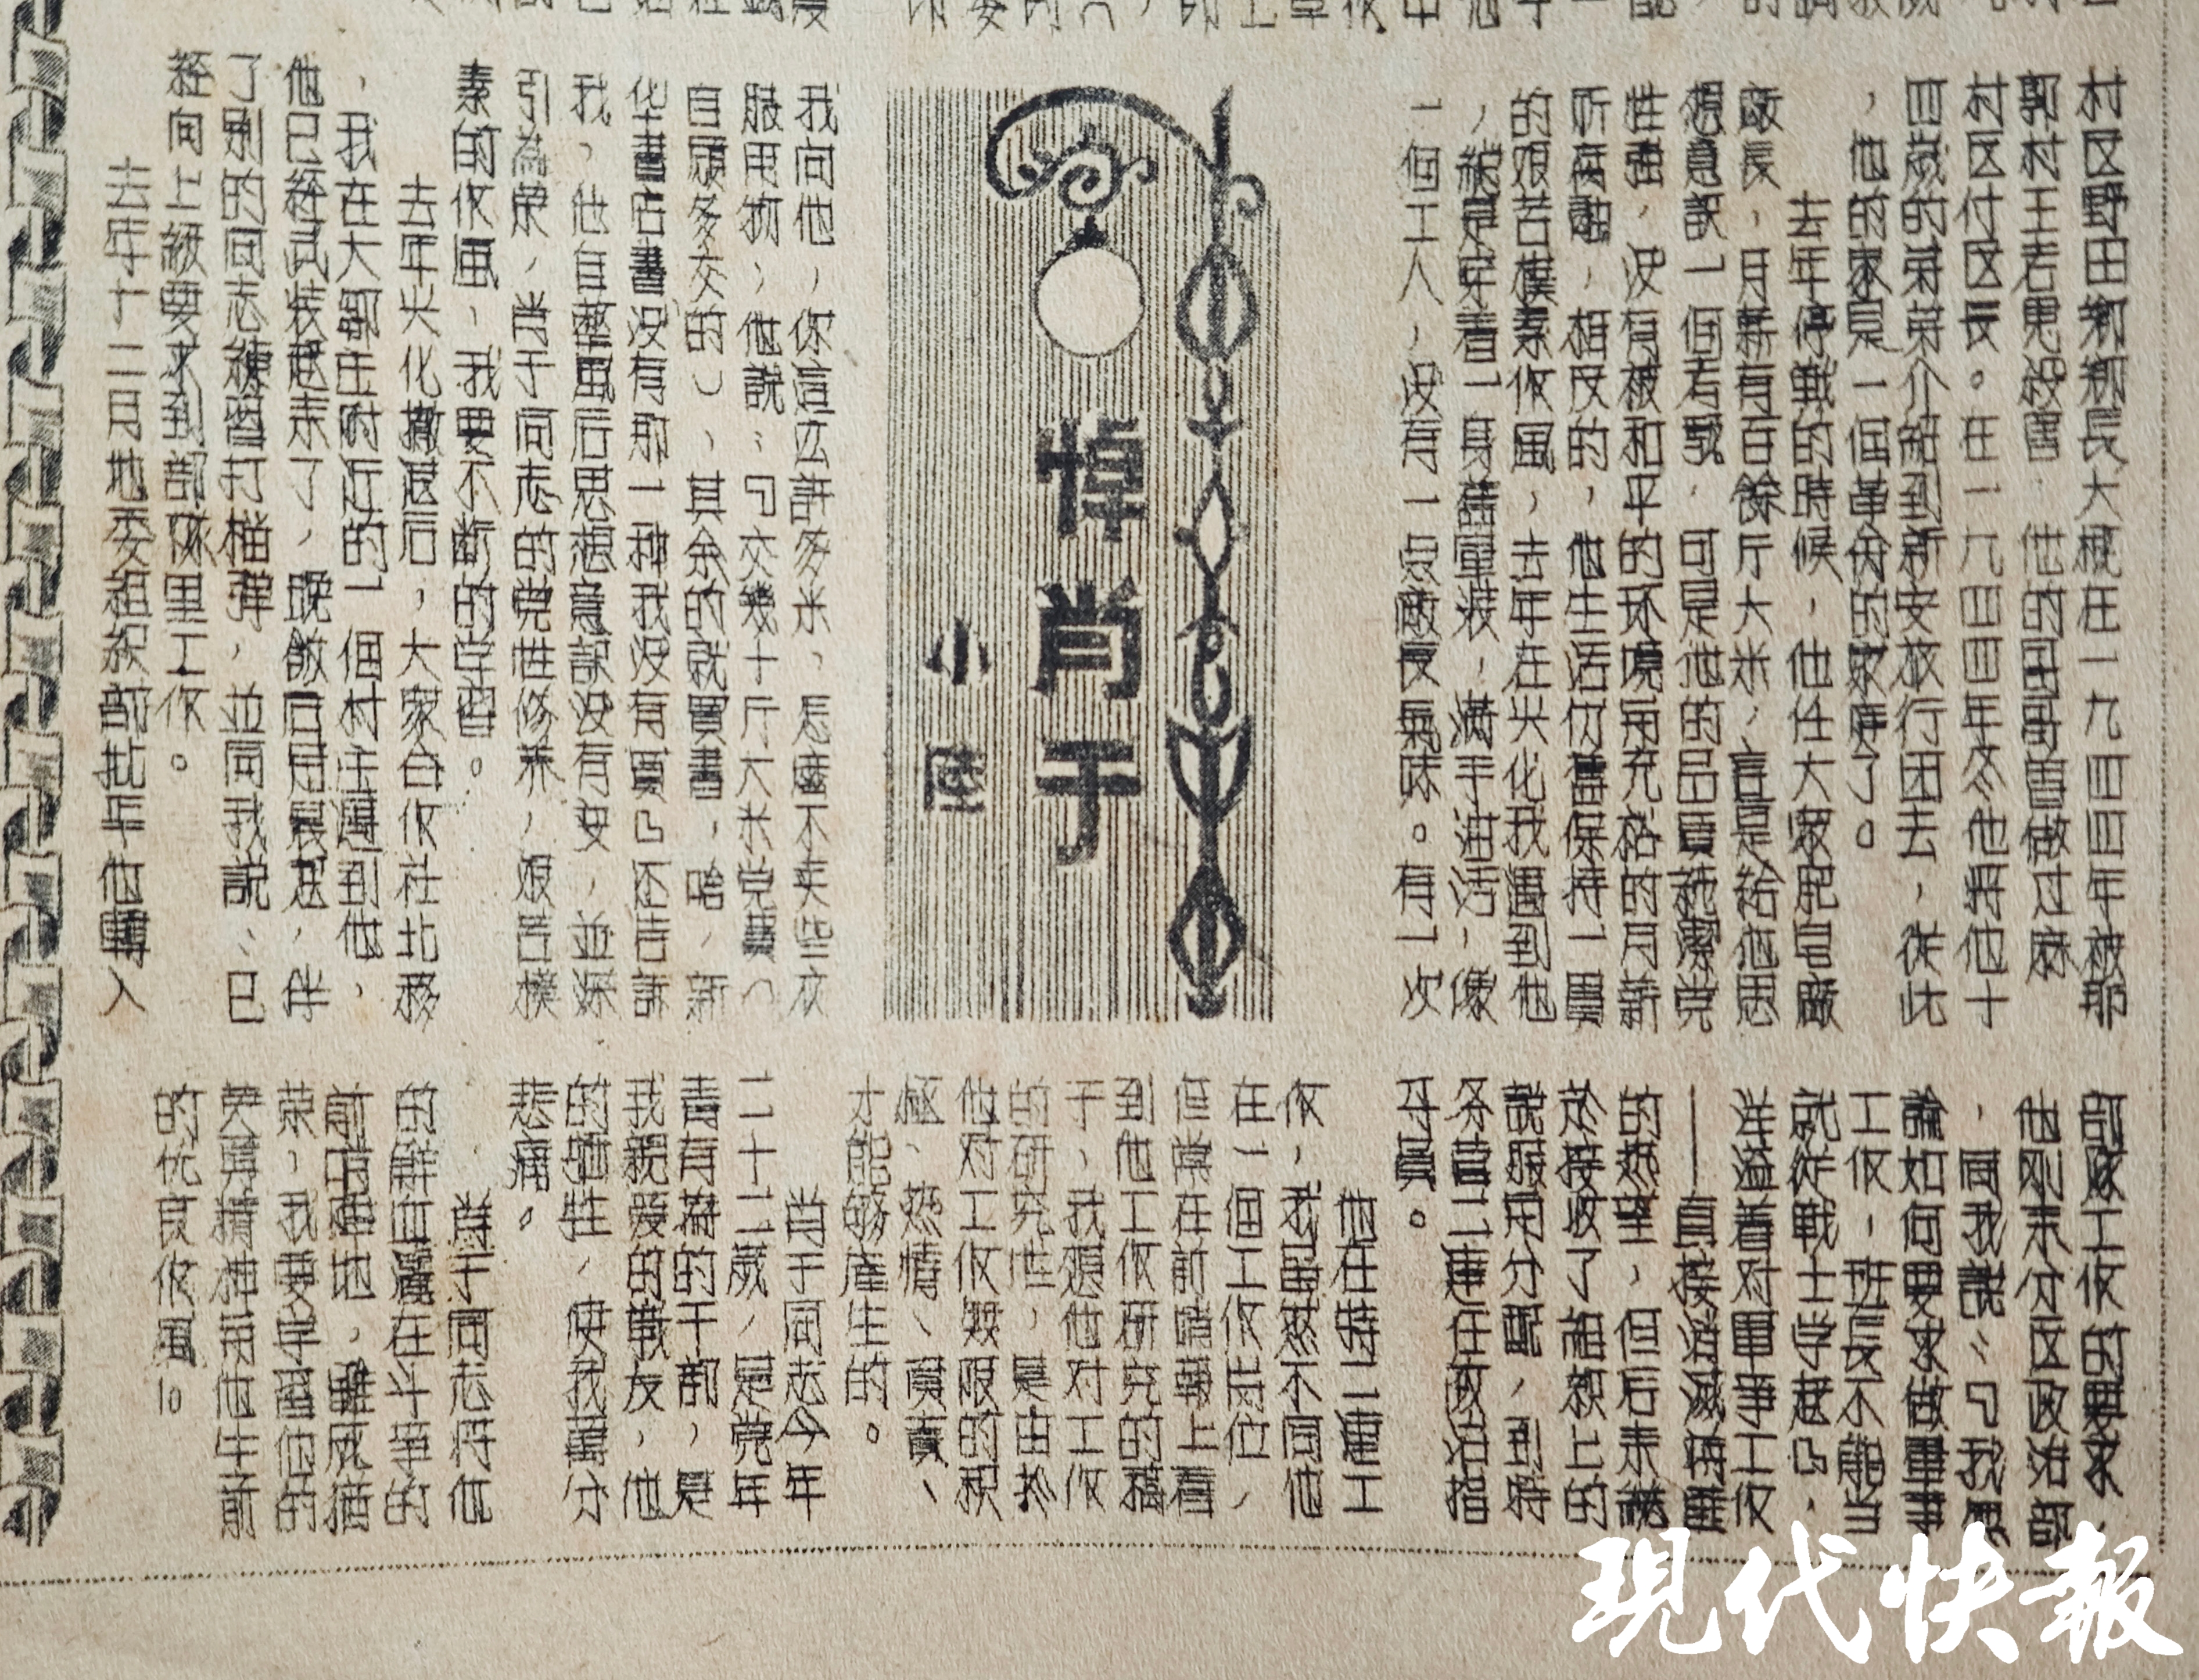 村区野田鄉鄉長大概在一九四四年被那
郭村王若思殺害，他的哥哥曾做过麻
村区付区長。在一九四四年冬他将他十
四歲的弟弟介紹到新安旅行团去，從此
，他的家是一個革命的家庭了。
去年停戰的時候，他任大眾肥皂廠
廠長，月薪有百餘斤大米，這是給他思
想意識一個考驗，可是他的品質純潔党
性強，没有被和平的环境用充裕的月薪
所侵蝕，相反的，他生活仍舊保持一貫
的艰苦樸素作風，去年在兴化我遇到他
，總是穿着一身舊軍裝，满手油活，像
一個工人，没有一点廠長氣味。有一次
悼肖于
小陸
我向他，你這么許多米，怎麽不卖些衣
服用物，他說：『交幾十斤大米党費（
自願多交的），其余的就買書，哈，新
华書店書没有那一种我没有買』还告訴
我，他自整風后思想意識没有变，並深
引為榮，肖于同志的党性修养，艰苦樸
素的作風，我要不断的学習。
去年兴化撤退后，大家合作社北移
，我在大鄒庄附近的一個村庄遇到他，
他已經武裝起来了，晚飯后用晨起，伴
了别的同志練習打槍彈，並同我說：已
經向上級要求到部隊里工作。
去年十二月地委組织部批准他轉入
部隊工作的要求，
他刚来分区政治部
，同我說：『我
論如何要求做軍事
工作，班長不能当
就从戰士学起』，
洋溢着对軍事工作
——直接消滅蔣匪
的热望，但后来
於接收了組织上的
說服用分配，到特
务营二連任政治指
导員。
他在特二連工
作，我虽然不同他
在一個工作岗位，
但常在前哨報上看
到他工作研究的稿
于，我想他对工作
的研究性，是由於
他对工作無限的积
極、热情、負責、
才能够產生的。
肖于同志今年
二十二歲，是党年
青有為的干部，是
我親爱的戰友，他
的牺牲，使我萬分
悲痛。
肖于同志将他
的鮮血灑在斗爭的
前哨陣地，雖 猶
荣，我要学習他的
英勇精神和他生前
的优良作風！。
現代快報